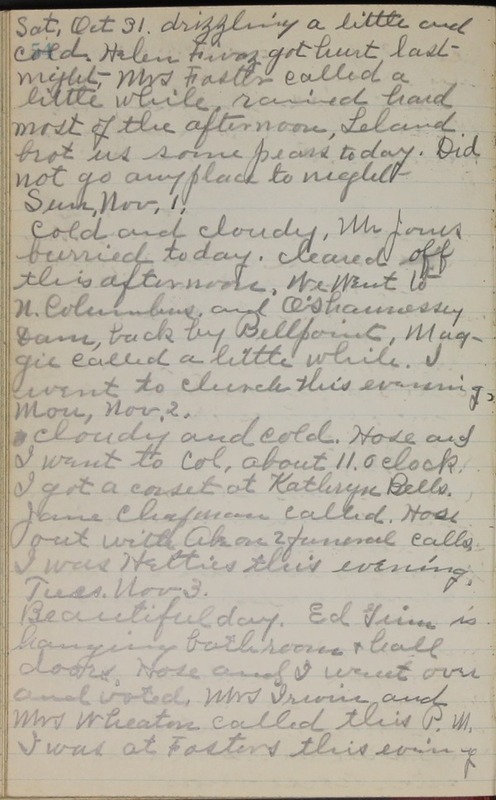 Sat, Oct 31. drizzling a little and
cold. Helen got hurt last
night, Mrs Foster called a
little while, rained hard
most of the afternoon, Leland
brot us some pears today. Did
not go anyplace to night
Sun, Nov, 1,
Cold and cloudy, Mr Jones
burried today. cleared off
this afternoon. We went to
N. Columbus, and O'Shannessy
Dam, back by Bellpoint, Mag-
gie called a little while. I
went to church this evening,
Mon, Nov. 2.
cloudy and cold. Hose and
I went to Col, about 11. oclock.
I got a corset at Kathryn Bells.
Jane Chapman called. Hose
out with on 2 funeral calls
I was Hetties this evening,
Tues. Nov. 3.
Beautiful day. Ed is
hanging bathroom + hall
doors. Hose and I went over
and voted. Mrs Irwin and
Mrs Wheaton called this P.M.
I was at Fosters this evening